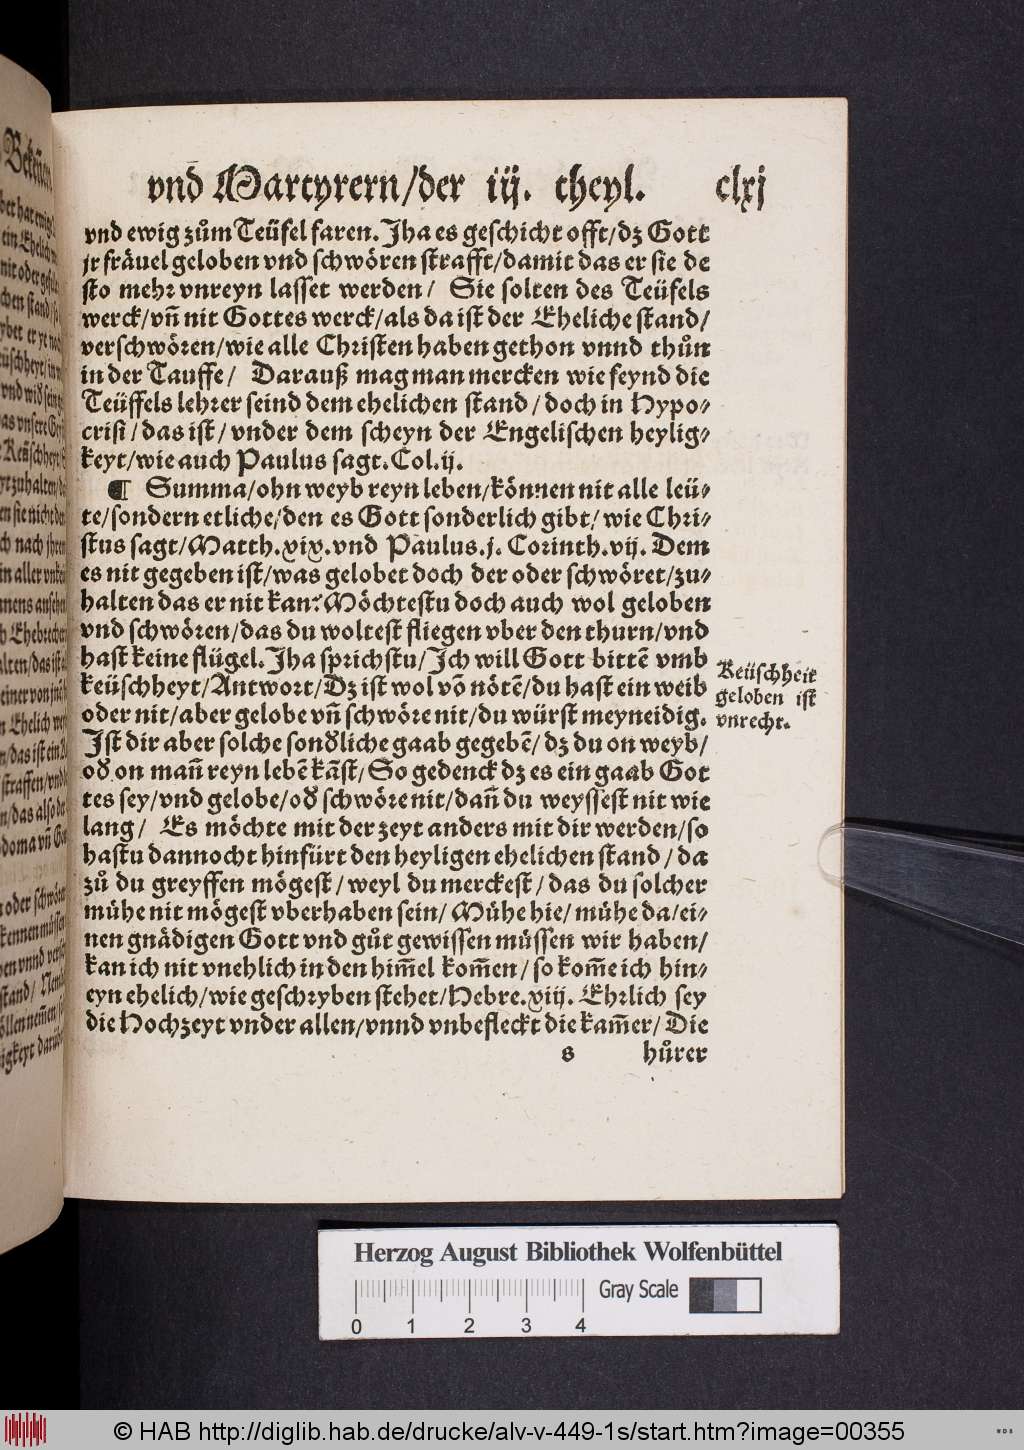 vnd Martyrern/der iij. theyl. clxj
vnd ewig zům Teüfel faren. Jha es geschicht offt/dz Gott
jr fräuel geloben vnd schwören strafft/damit das er sie de
sto mehr vnreyn lasset werden/ Sie solten des Teüfels
werck/vn̄ nit Gottes werck/als da ist der Eheliche stand/
verschwören/wie alle Christen haben gethon vnnd thůn
in der Tauffe/ Darauß mag man mercken wie feynd die
Teüffels lehrer seind dem ehelichen stand/doch in Hypo-
crisi/das ist/vnder dem scheyn der Engelischen heylig-
keyt/wie auch Paulus sagt. Col.ij.
¶ Summa/ohn weyb reyn leben/können nit alle leü-
te/sondern etliche/den es Gott sonderlich gibt/wie Chri-
stus sagt/Matth.xix.vnd Paulus.j. Corinth.vij. Dem
es nit gegeben ist/was gelobet doch der oder schwöret/zu-
halten das er nit kan? Möchtestu doch auch wol geloben
vnd schwören/das du woltest fliegen vber den thurn/vnd
hast keine flügel. Jha sprichstu/Ich will Gott bittē vmb
keüschheyt/Antwort/Dz ist wol vō nötē/du hast ein weib
oder nit/aber gelobe vn̄ schwöre nit/du würst meyneidig.
Ist dir aber solche sonđliche gaab gegebē/dz du on weyb/
ođ on man̄ reyn lebē kāst/So gedenck dz es ein gaab Got
tes sey/vnd gelobe/ođ schwöre nit/dan̄ du weyssest nit wie
lang/ Es möchte mit der zeyt anders mit dir werden/so
hastu dannocht hinfürt den heyligen ehelichen stand/da
zů du greyffen mögest/weyl du merckest/das du solcher
mühe nit mögest vberhaben sein/Mühe hie/mühe da/ei-
nen gnädigen Gott vnd gůt gewissen müssen wir haben/
kan ich nit vnehlich in den him̄el kom̄en/so kom̄e ich hin-
eyn ehelich/wie geschryben stehet/Hebre.xiij. Ehrlich sey
die Hochzeyt vnder allen/vnnd vnbefleckt die kam̄er/Die
s hůrer
Keüschheit
geloben ist
vnrecht.
Herzog August Bibliothek Wolfenbüttel
Gray Scale
0 1 2 3 4
© HAB http://diglib.hab.de/drucke/alv-v-449-1s/start.htm?image=00355